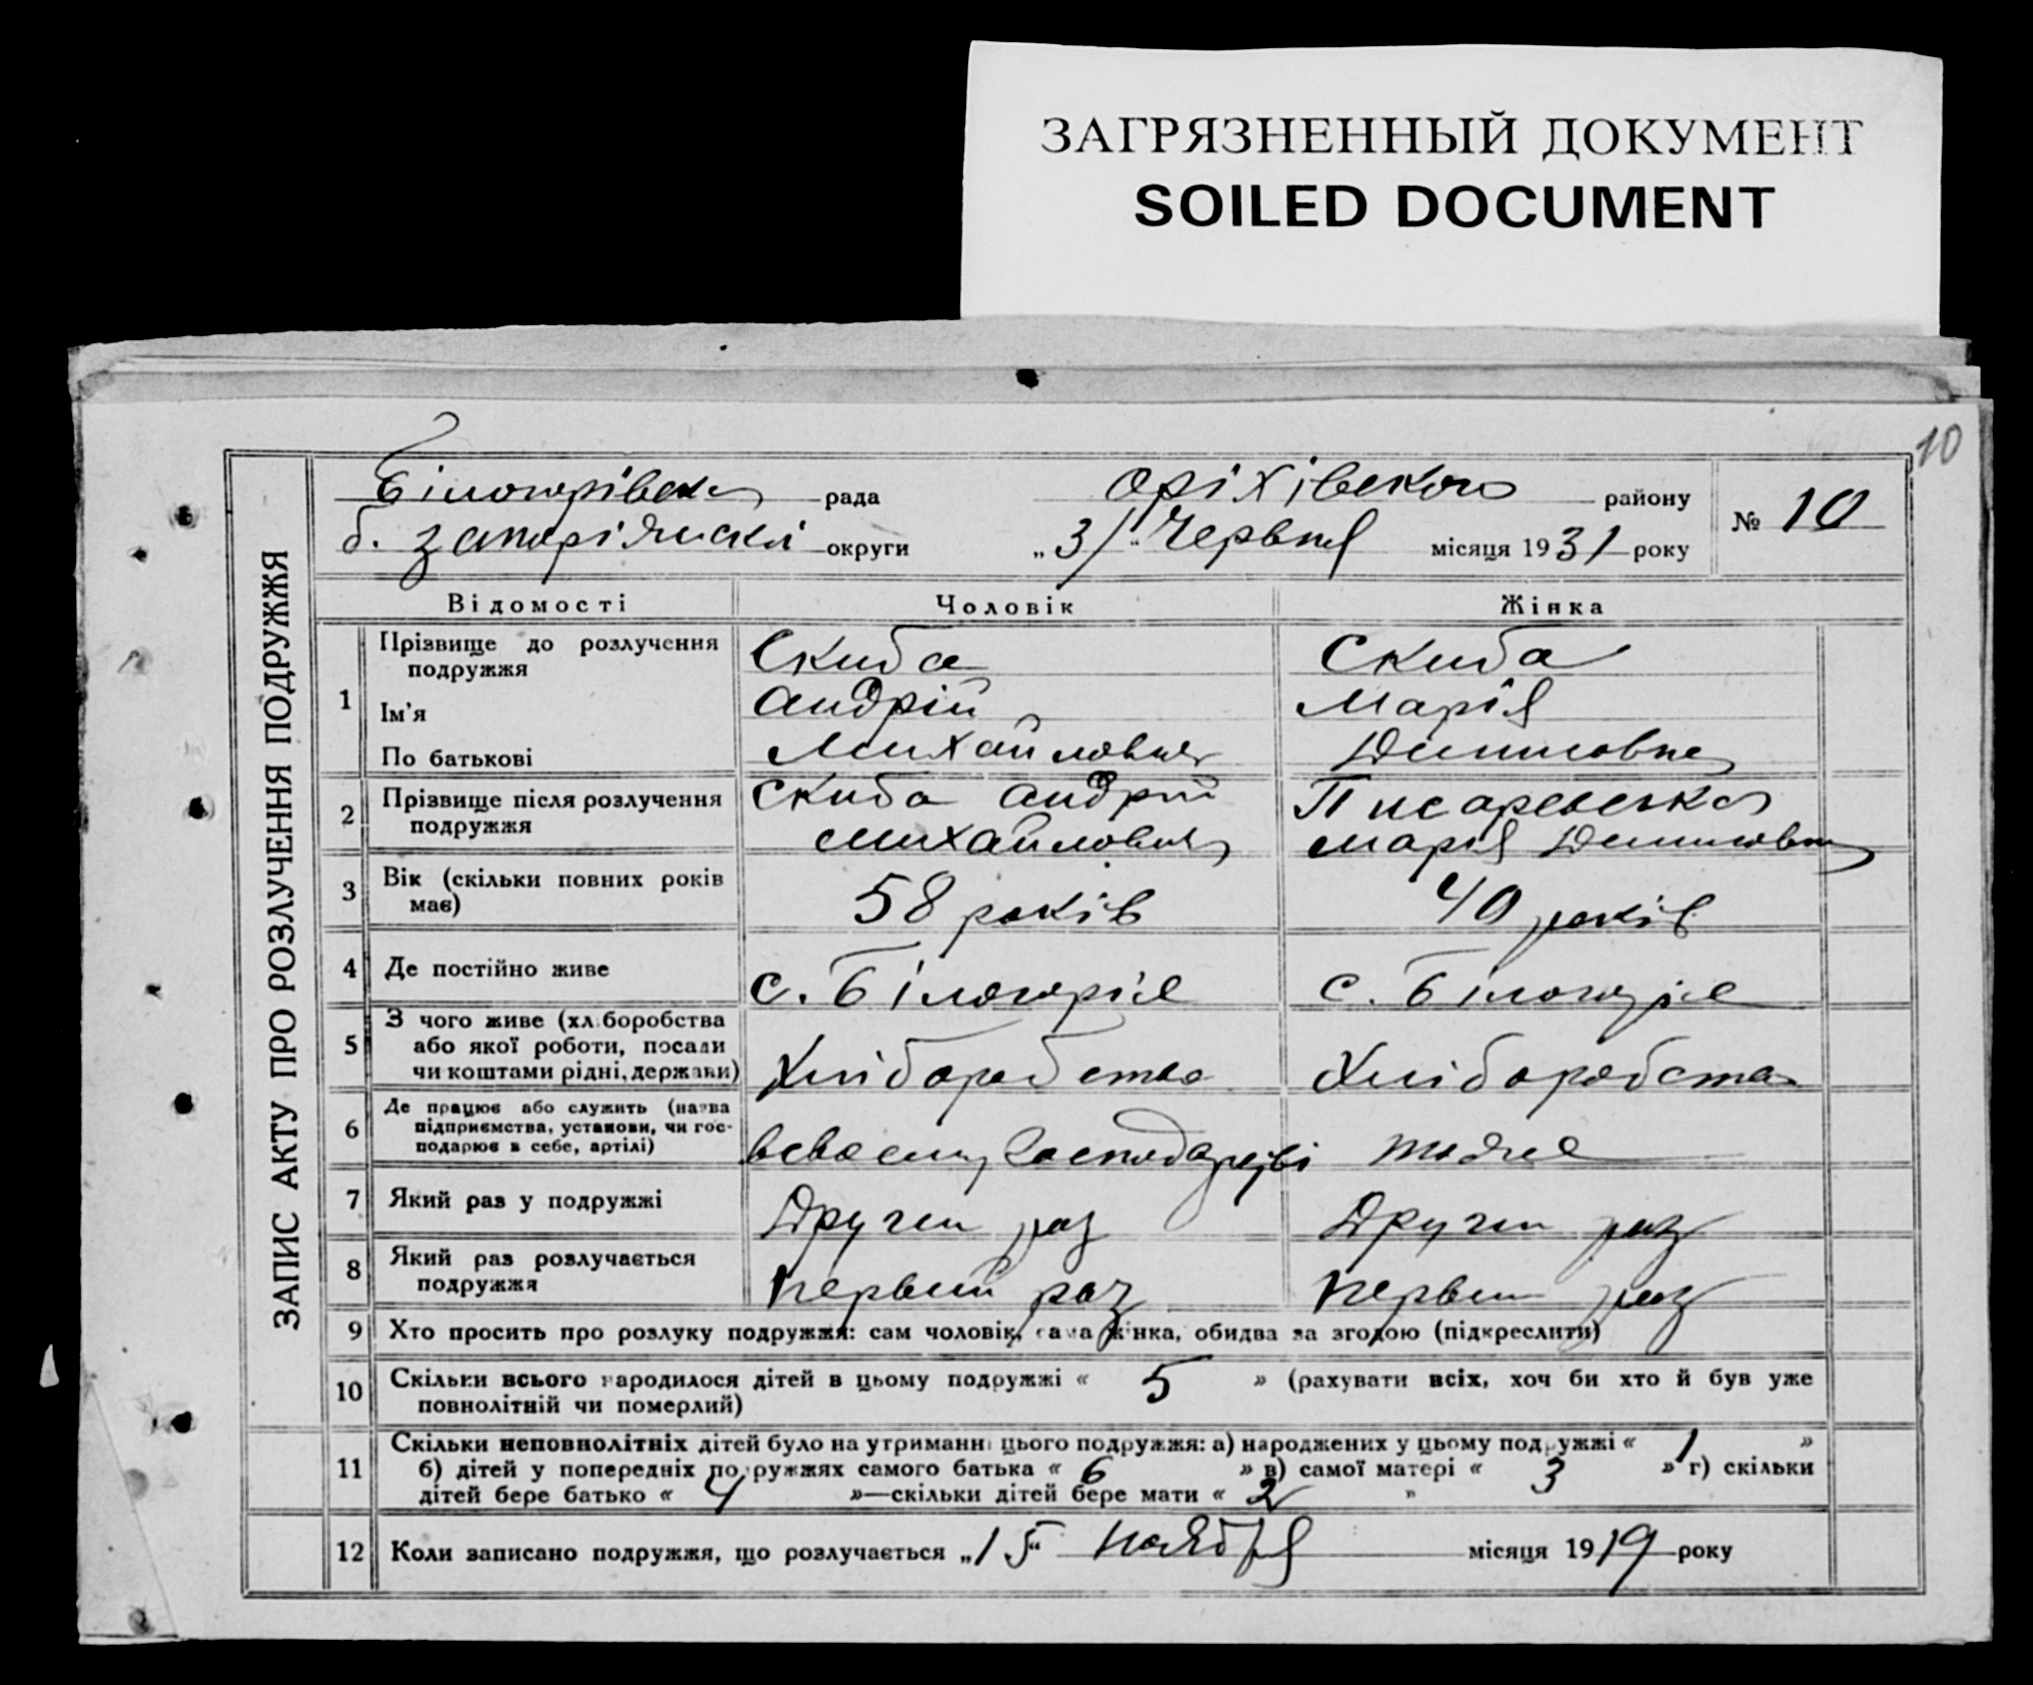 ЗАГРЯЗНЕННЫЙ ДОКУМЕНТ
SOILED DOCUMENT
10
ЗАПИС АКТУ ПРО РОЗЛУЧЕННЯ ПОДРУЖЖЯ
Білогорівська рада Оріхівського району
№ 10
б. Запоріжської округи „3/“ Червня місяця 1931 року
Відомості Чоловік Жінка
1 Прізвище до розлучення подружжя Скиба Скиба
Ім'я Андрій Марія
По батькові Михайлович
2 Прізвище після розлучення подружжя Скиба Андрій Писаревська
Михайлович Марія
3 Вік (скільки повних років має) 58 років 40 років
4 Де постійно живе с. Білогоріє с. Білогоріє
5 З чого живе (хліборобства або якої роботи, посади чи коштами рідні, держави) Хліборобства Хліборобства
6 Де працює або служить (назва підприємства, установи, чи господарює в себе, артілі) всвоему господарстві тоже
7 Який раз у подружжі Другий раз Другий раз
8 Який раз розлучається подружжя первий раз первий раз
9 Хто просить про розлуку подружжя: сам чоловік, сама жінка, обидва за згодою (підкреслити)
10 Скільки всього народилося дітей в цьому подружжі « 5 » (рахувати всіх, хоч би хто й був уже
повнолітній чи померлий)
11 Скільки неповнолітніх дітей було на утриманні цього подружжя: а) народжених у цьому подружжі « 1 »
б) дітей у попередніх подружжях самого батька « 6 » в) самої матері « 3 » г) скільки
дітей бере батько « 4 »—скільки дітей бере мати « 2 »
12 Коли записано подружжя, що розлучається „15“ ноября місяця 1919 року